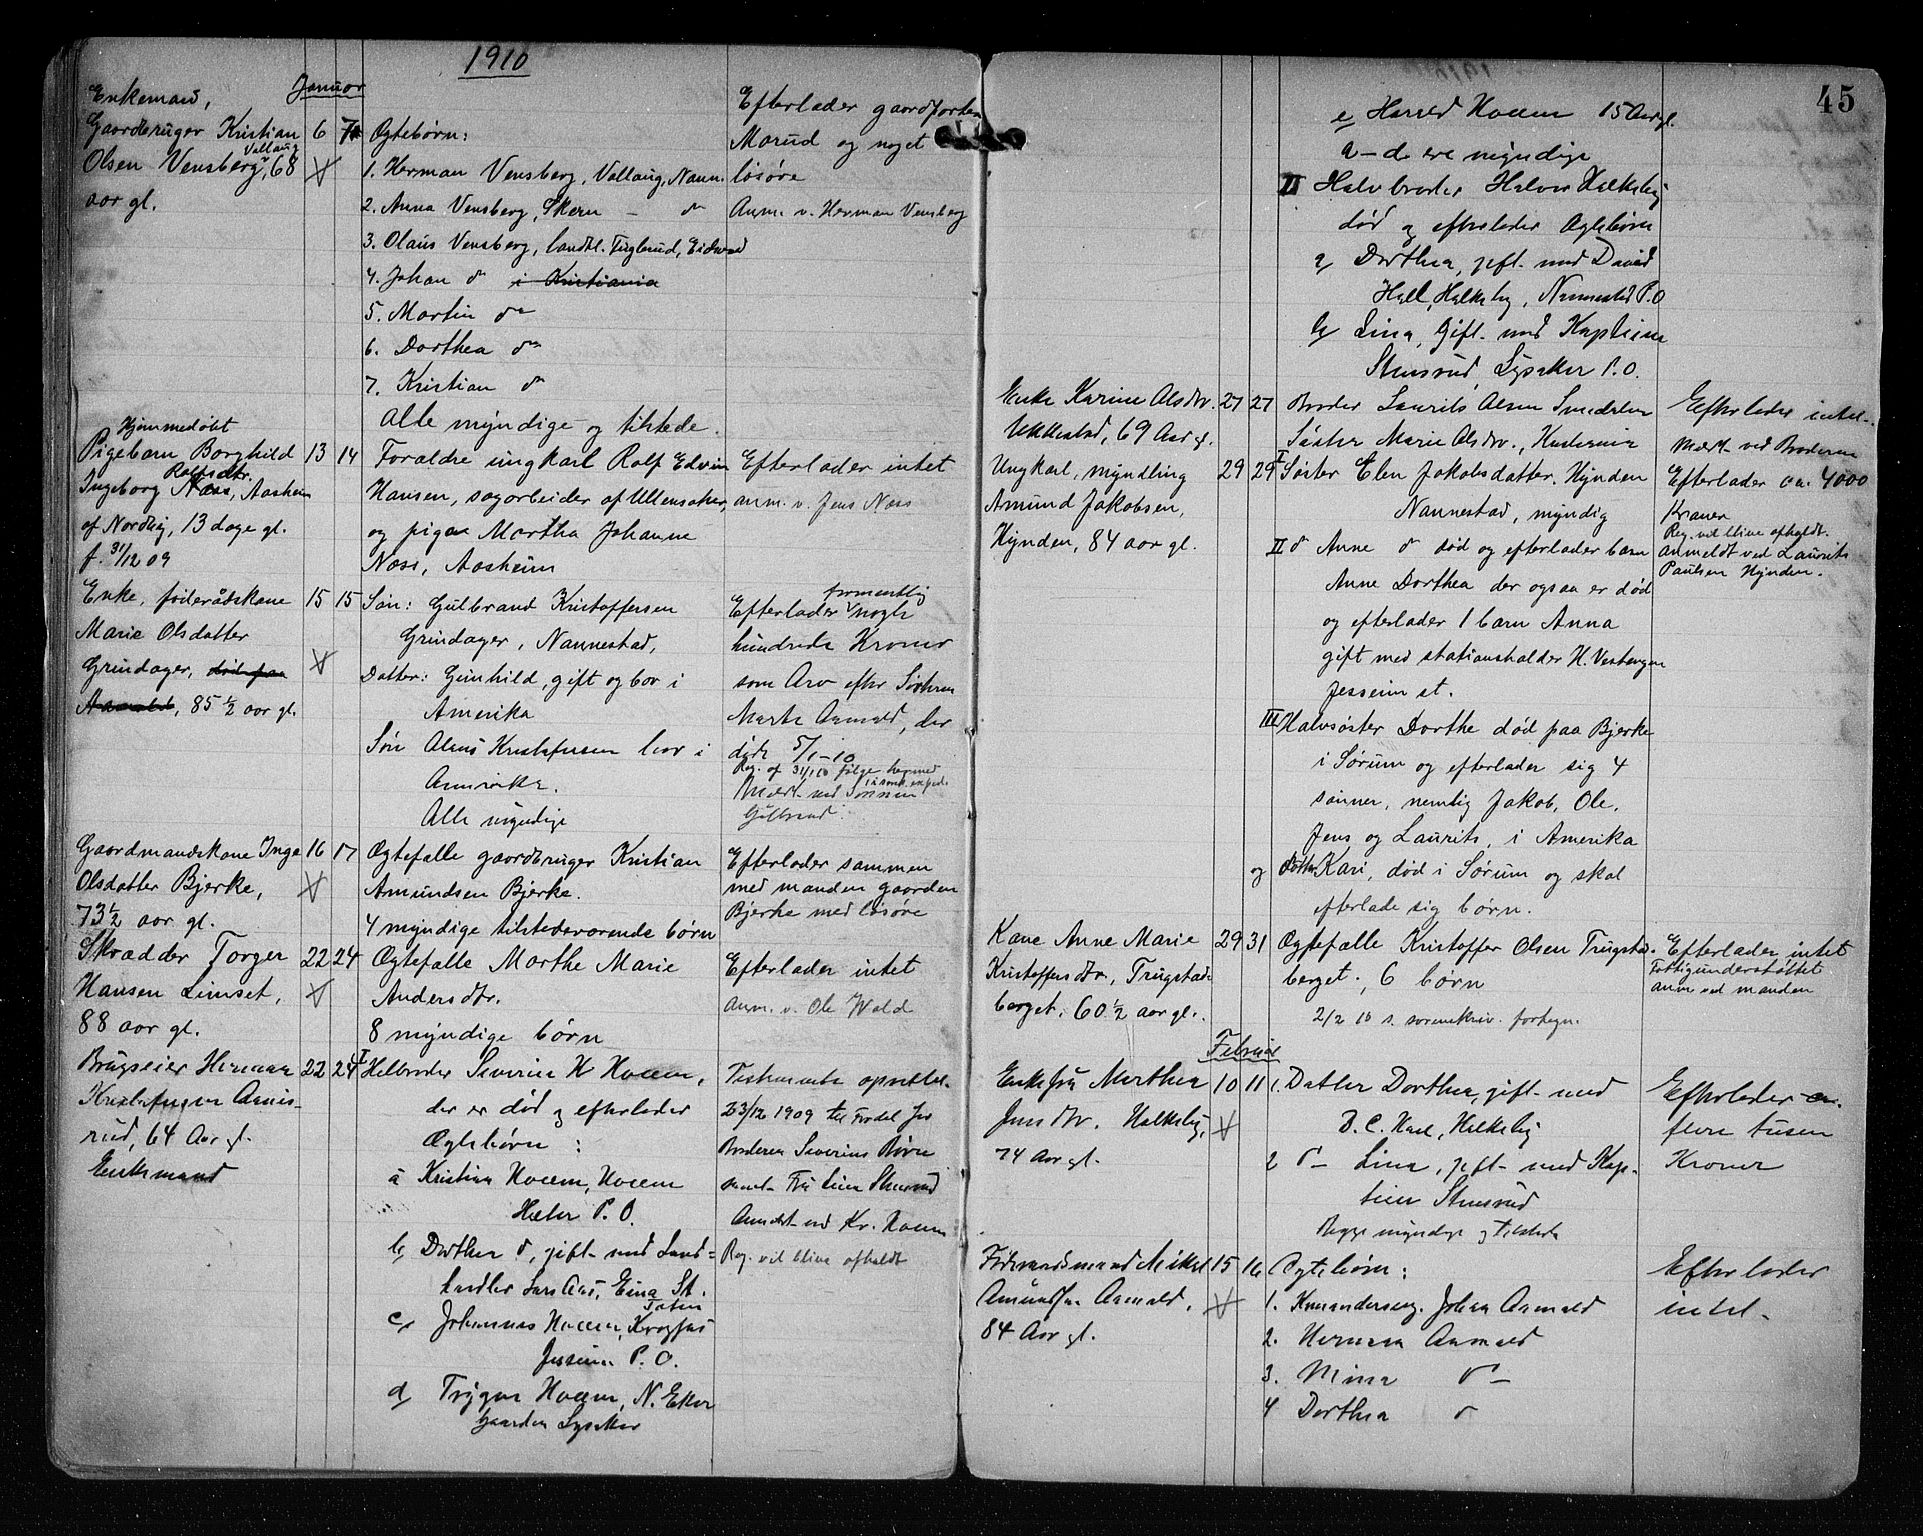 1910
Januar
Enkemand,
Gaardbruger Kristian 6 7
Olsen Vensberg, Vallaug, 68
aar gl.
Ægtebørn:
1. Herman Vensberg, Vallaug, Nann.
2. Anna Vensberg, Skern — do
3. Olaus Vensberg, landh. Fuglerud, Eidsvold
4. Johan do i Kristiania
5. Martin do
6. Dorthea do
7. Kristian do
Alle myndige og tilstede.
Efterlader gaardparten
Marud og noget
løsøre
Anm. v. Herman Vensberg
Hjemmedøbt
Pigebarn Borghild 13 14
Ingeborg Rolfsdtr. Næss, Aasheim
af Nordby, 13 dage gl.
f. 31/12 09
Forældre ungkarl Rolf Edvin
Hansen, sagarbeider af Ullensaker,
og pigen Martha Johanne
Næss, Aasheim
Efterlader intet
anm. v. Jens Næss
Enke, føderådskone 15 15
Marie Olsdatter
Grindager, død paa
Aamold, 85 1/2 aar gl.
Søn: Gulbrand Kristoffersen
Grindager, Nannestad,
Datter: Gunhild, gift og bor i
Amerika
Søn Olaus Kristoffersen bor i
Amerika.
Alle myndige
Efterlader formentlig nogle
hundrede Kroner
som Arv efter Søsteren
Marte Aamold, der
døde 5/1-10
Reg. af 31/1 10 følge hermed
Meldt ved Sønnen
Gulbrand.
Gaardmandskone Inge 16 17
Olsdatter Bjerke,
73 1/2 aar gl.
Ægtefælle gaardbruger Kristian
Amundsen Bjerke.
4 myndige tilstedeværende børn
Efterlader sammen
med manden gaarden
Bjerke med løsøre
Skrædder Torger 22 24
Hansen Limset,
88 aar gl.
Ægtefælle Marthe Marie
Andersdtr.
8 myndige børn
Efterlader intet
anm. v. Ole Wold
Brugseier Herman 22 24
Kristoffersen Aamis-
rud, 64 Aar gl.
Enkemand
I Helbroder Severin K Hoem,
der er død og efterlader
Ægtebørn:
a Kristian Hoem, Hoem
Holter P.O.
b Dorthea do, gift med Land=
handler Lars Aas, Eina St.
Toten
c Johannes Hoem, Krogfos
Jessheim P.O.
d Trygve Hoem, N. Eker
Gaarden Lysaker
Testamente oprettet
23/12 1909 til Fordel for
Broderen Severins Børn
samt Fru Lina Stensrud
Anmeldt ved Kr. Hoem
Reg. vil blive afholdt
45
e Harald Hoem 15 Aar gl.
a-d ere myndige
II Halvbroder Halvor Halkeby
død og efterlader Ægtebørn
a Dorthea, gift med David
Hall, Halkeby, Nannestad P.O
b Lina, gift med Kaptein
Stensrud, Lysaker P.O.
Enke Karine Olsdtr. 27 27
Ukkestad, 69 Aar gl.
Broder Laurits Olsen Smedstuen
Søster Marie Olsdtr.,
Efterlader intet.
Meldt ved Broderen
Ungkarl, myndling 29 29
Amund Jakobsen,
Hynden, 84 aar gl.
I Søster Elen Jakobsdatter Hynden
Nannestad, myndig
II do Anne do død og efterlader barn
Anne Dorthea der ogsaa er død
og efterlader 1 barn Anna
gift med stationsholder H. Vestengen
Jesseim st.
III Halvsøster Dorthe død paa Bjerke
i Sørum og efterlader sig 4
sønner, nemlig Jakob, Ole,
Jens og Laurits, i Amerika
og datter Kari, død i Sørum og skal
efterlade sig børn.
Efterlader ca. 4000
Kroner
Reg. vil blive afholdt.
anmeldt ved Laurits
Paulsen Hynden.
Kone Anne Marie 29 31
Kristoffersdtr, Trugstad-
berget, 60 1/2 aar gl.
Ægtefælle Kristoffer Olsen Trugstad-
berget, 6 børn
2/2 10 s. sorenskriv. fortegn.
Efterlader intet
Fattigunderstøttet
anm ved manden
Februar
Enkefru Marthea 10 11
Jensdtr. Halkeby,
74 Aar gl.
1. Datter Dorthea, gift med
D. C. Hall, Halkeby
2 do — Lina, gift med Kap-
tein Stensrud
Begge myndige og tilstede
Efterlader
flere tusen
Kroner
Føderaadsmand Mikkel 15 16
Amundsen Aamold,
84 Aar gl.
Ægtebørn:
1. Johan Aamold
2. Herman Aamold
3. Mina do —
4 Dorthea do
Efterlader
intet.